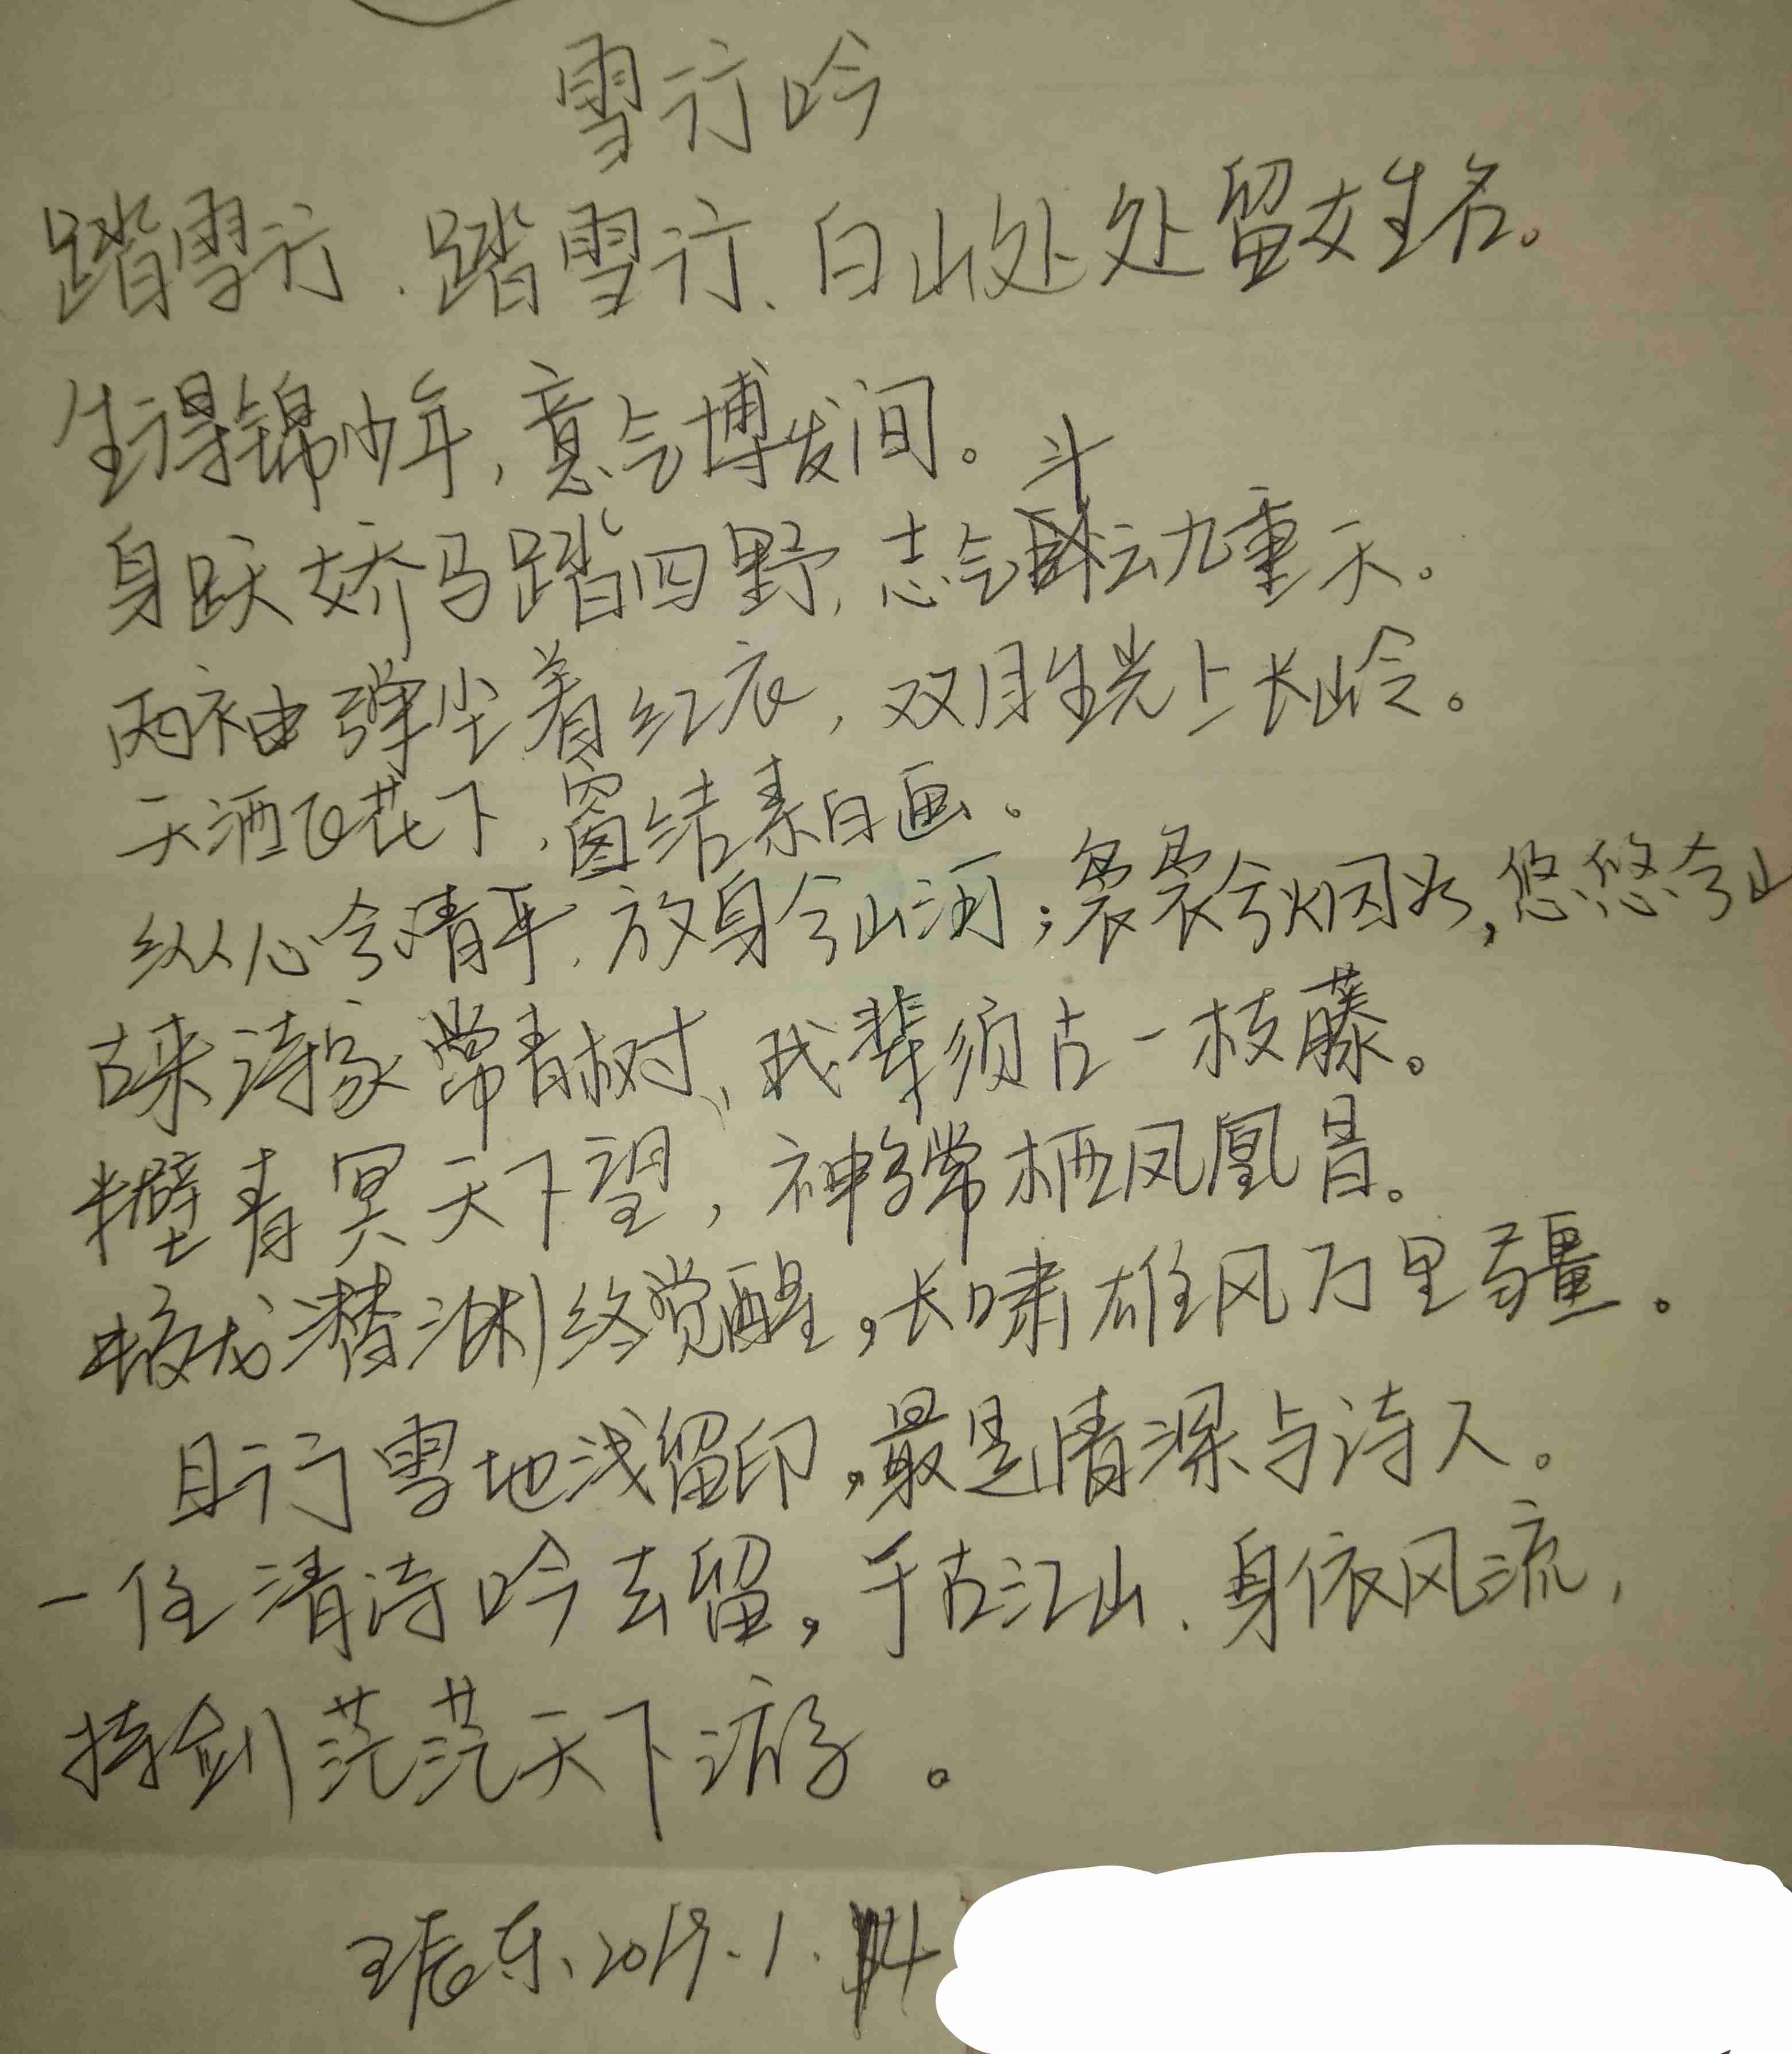 雪行吟
踏雪行、踏雪行、白山处处留女生名。
生得锦少年，意气博发间。
身跃娇马踏四野，志气斗云九重天。
两袖弹尘着红衣，双月生光上长岭。
天洒飞花下，窗结素白画。
纵心兮清平、放身兮山河；袅袅兮烟水，悠悠兮山
古来诗家常青树、我辈须占一枝藤。
半壁青冥天下望，神骅常栖凤凰昔。
蛟龙潜渊终觉醒，长啸雄风万里疆。
且行雪地浅留印，最是情深与诗人。
一任清诗吟去留，千古江山、身依风流，
持剑茫茫天下游。
王辰东、2019.1.14